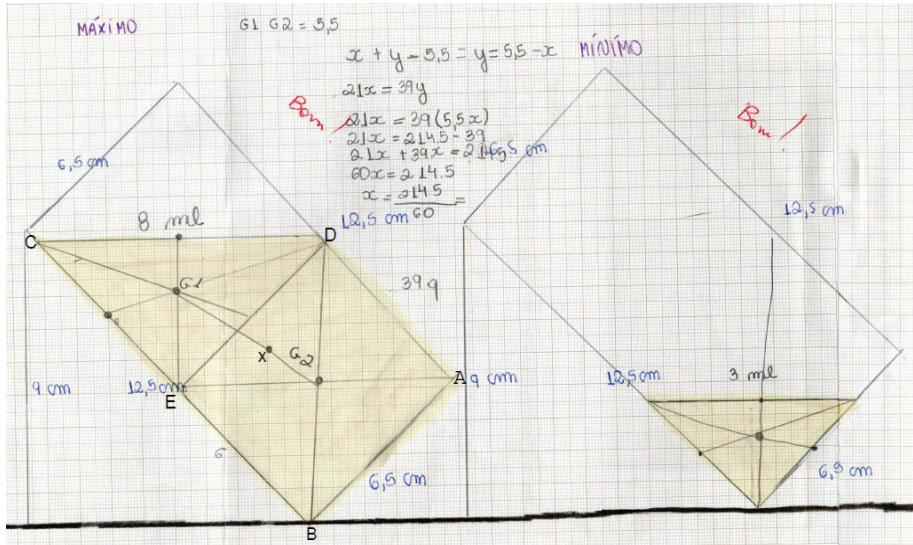 MÁXIMO
G1 G2 = 5,5
x + y = 5,5 = y = 5,5 - x
MÍNIMO
21x = 39y
Bom!
21x = 39(5,5x)
21x = 214.5 - 39
21x + 39x = 214,5
60x = 214.5
x = 214.5
60
=
Bom!
6,5 cm
6,5 cm
8 ml
12,5 cm
12,5 cm
C
D
G1
39g
X
G2
9 cm
12,5 cm
E
A
9 cm
12,5 cm
3 ml
6
6,5 cm
6,5 cm
B